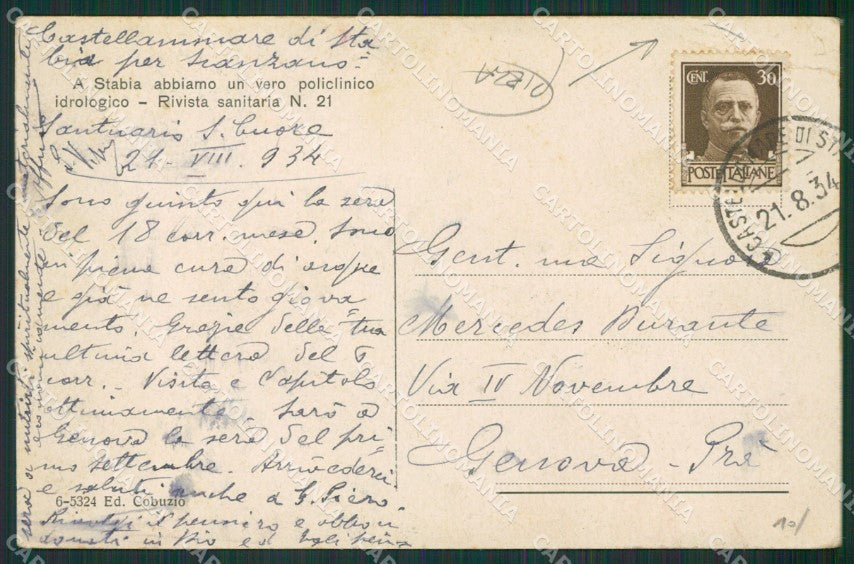 Castellammare di Sta
bia per Scanzano
A Stabia abbiamo un vero policlinico
idrologico – Rivista sanitaria N. 21
Santuario S. Cuore
21 - VIII. 934
Sono giunto qui la sera
del 18 corr. mese. Sono
in piena cura di acque
e già ne sento giova
mento. Grazie della tua
ultima lettera del 6
corr. - Visita e Capitolo
ottimamente. Sarò a
Genova la sera del pri-
mo settembre. Arrivederci
e saluti anche a
6-5324 Ed. Cobuzio
il pensiero e
in Dio ed
CENT. 30
POSTE ITALIANE
CASTELLAMMARE DI STA
21.8.34
Gent. ma Signora
Mercedes Durante
Via IV Novembre
Genova - Prà
10/
CARTOLINOMANIA